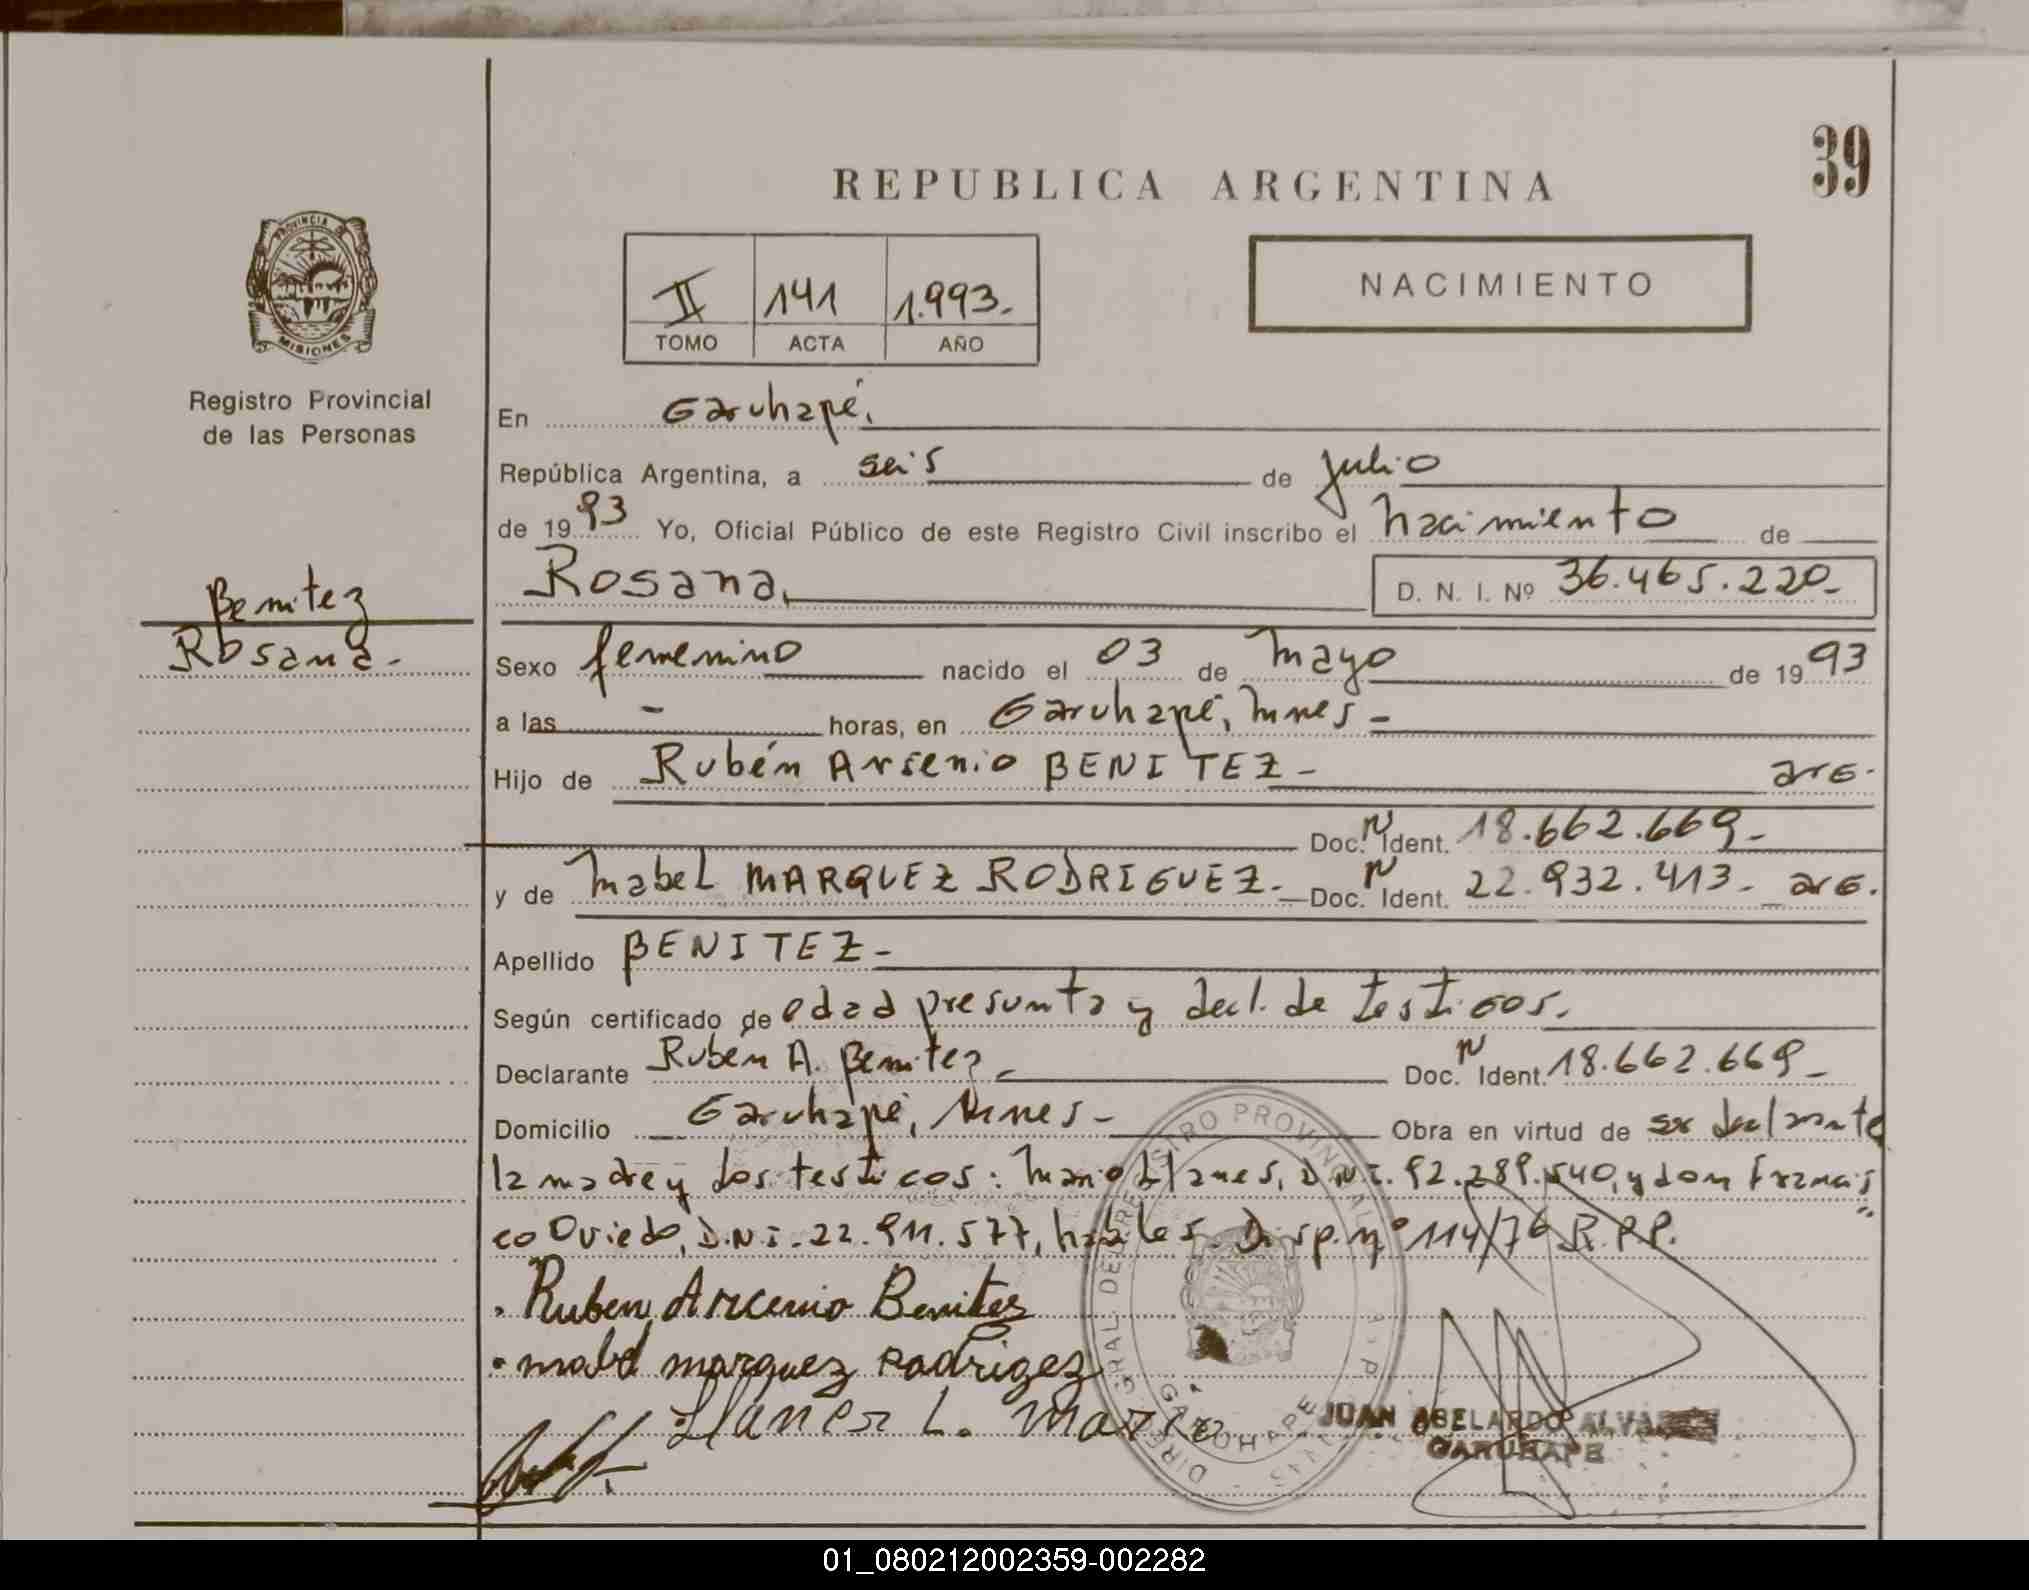 39
REPUBLICA ARGENTINA
PROVINCIA DE
MISIONES
II 141 1.993.-
TOMO ACTA AÑO
NACIMIENTO
Registro Provincial
de las Personas
Benitez
Rosana.-
En Garuhapé,
República Argentina, a seis de julio
de 1993 Yo, Oficial Público de este Registro Civil inscribo el nacimiento de
Rosana, D. N. I. Nº 36.465.220-
Sexo femenino nacido el 03 de mayo de 1993
a las - horas, en Garuhapé, Mnes-
Hijo de Rubén Arsenio BENITEZ- arg.
Doc. N Ident. 18.662.669-
y de Mabel MARQUEZ RODRIGUEZ.- Doc. N Ident. 22.932.413- arg.
Apellido BENITEZ-
Según certificado de edad presunta y decl. de testigos.
Declarante Rubén A. Benitez Doc. N Ident. 18.662.669-
Domicilio Garuhapé, Mnes- Obra en virtud de ser declarante
la madre y dos testigos: Mario Llanes, D.N.I. 92.289.540, y don Francis
co Oviedo, D.N.I. 22.911.577, hábiles. Disp. nº 114/76 R.P.P.
Ruben Arcenio Benites
mabel marquez Rodrigez
Llanes L. Mario
DIREC. GRAL. DEL REGISTRO PROVINCIAL
GARUHAPE
JUAN ABELARDO
GARUHAPE
01_080212002359-002282